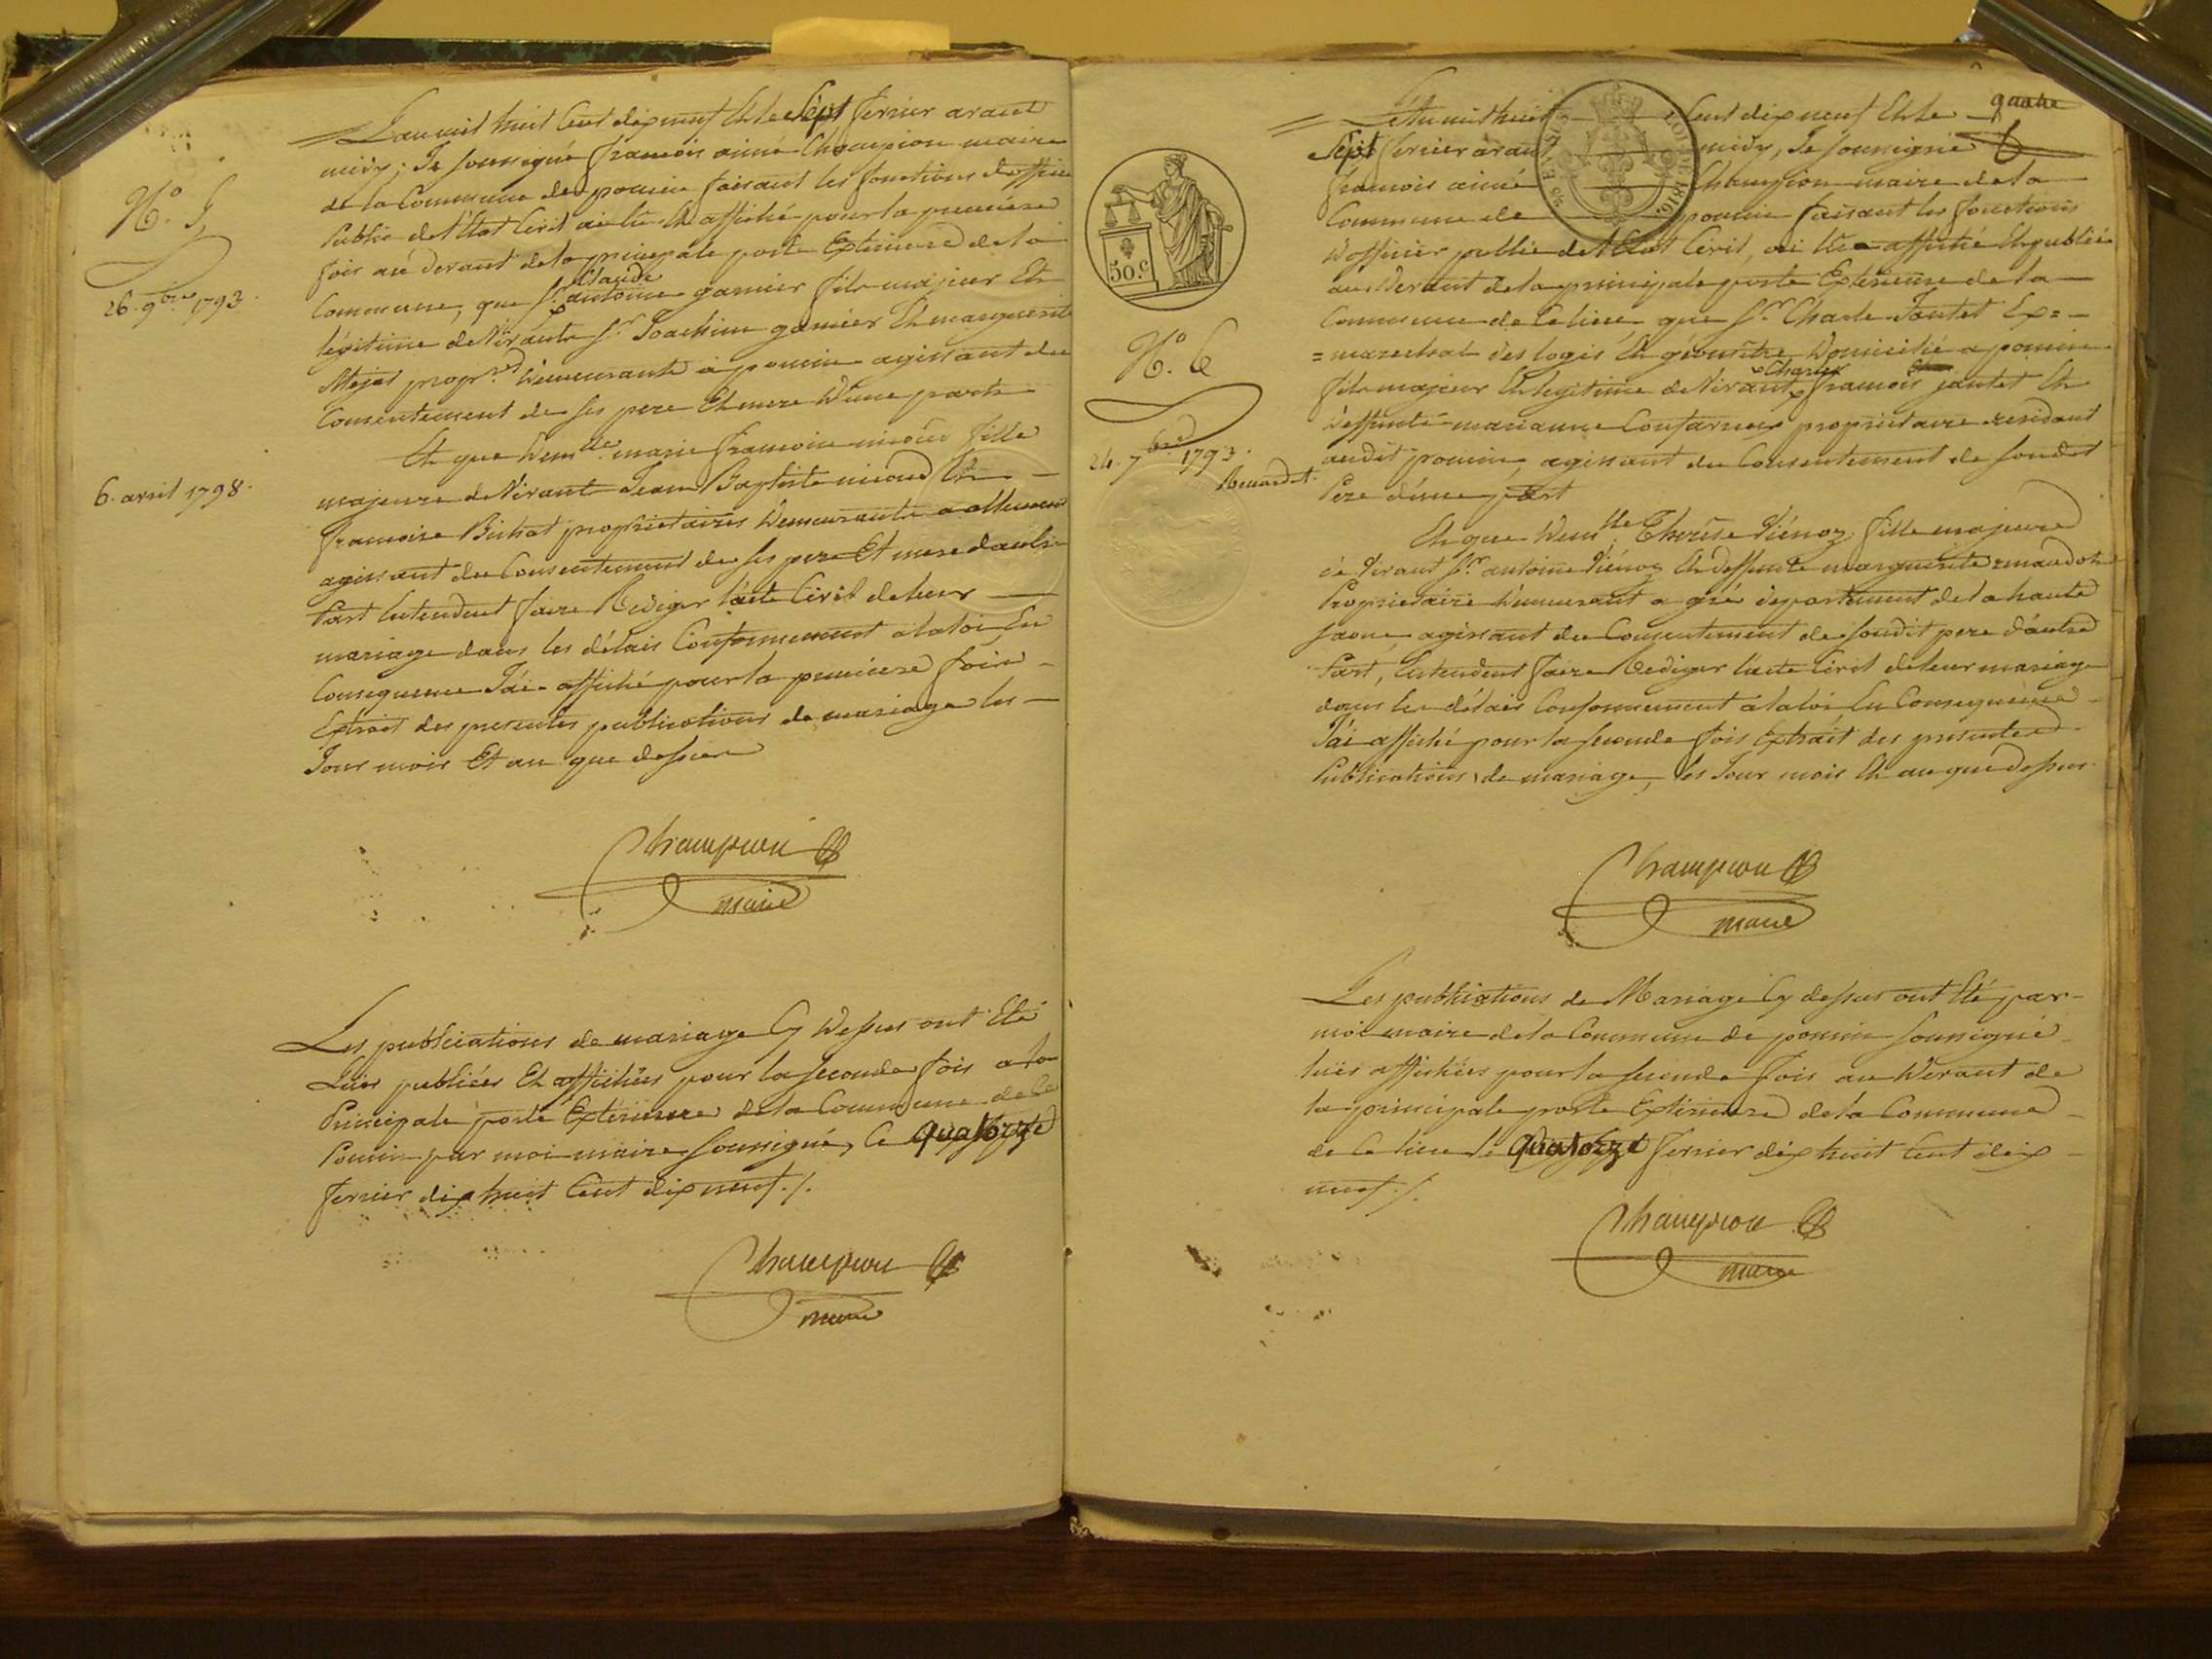 N.o 5
26. 9bre 1793.
6. avril 1798.
L'an mil huit Cent dix neuf Et le Sept fevrier avant
midy; Je soussigné françois aimé Champion maire
de la Commune de pomin faisant les fonctions d'officier
Public de l'Etat Civil ai lu Et affiché pour la premiere
fois au devant de la principale porte Exterieure de la
Commune, que Sr. Claude antoine garnier fils majeur Et
légitime de vivants Sr. Joachim garnier Et marguerite
propres. demeurants a pomin agissant du
Consentement de ses pere Et mere d'une part
Et que demlle. marie françoise fille
majeure de vivants Jean Baptiste Et
françoise Bichat proprietaires demeurants a
agissant du Consentement de ses pere Et mere d'autre
Part Entendent faire Rediger l'acte Civil de leur
mariage dans les délais Conformement a la loi, En
Consequence J'ai affiché pour la premiere fois
Extrait des presentes publications de mariage les
Jour mois Et an que dessus
Champion
maire
Les publications de mariage Cy dessus ont Eté
Luës publiées Et affichées pour la seconde fois a la
Principale porte Exterieure de la Commune de Ce
Pomin par moi maire soussigné, Ce quatorze
fevrier dix huit Cent dix neuf./.
Champion
maire
quatre
50.c
N.o 6
24. 7bre 1793.
Renardot.
L'An mil huit Cent dix neuf Et le
Sept fevrier avant midy, Je soussigné
françois aimé Champion maire de la
Commune de pomin faisant les fonctions
d'officier public de l'Etat Civil, ai lu affiché Et publié
au devant de la principale porte Exterieure de la
Commune de Ce lieu que Sr. Charle Jantet Ex=
=marechal des logis Et géomêtre domicilié a pomin
fils majeur Et legitime de vivant Charles françois jantet Et
deffunte marianne proprietaire residant
audit pomin, agissant du Consentement de sondit
Pere d'une part
Et que demlle. Therèse Viénoz fille majeure
de vivant Sr. antoine Viénoz Et deffunte marguerite renardot
Proprietaire demeurant a gré departement de la haute
saone, agissant du Consentement de sondit pere d'autre
Part, Entendent faire Rediger l'acte Civil de leur mariage
dans les délais Conformement a la loi En Consequence
J'ai affiché pour la seconde fois Extrait des presentes
Publications de mariage, les Jour mois Et an que dessus.
Champion
maire
Les publications de Mariage Cy dessus ont Eté par
moi maire de la Commune de pomin soussigné
luës affichées pour la seconde fois au devant de
la principale porte Exterieure de la Commune
de Ce lieu le quatorze fevrier dix huit Cent dix
neuf./.
Champion
maire